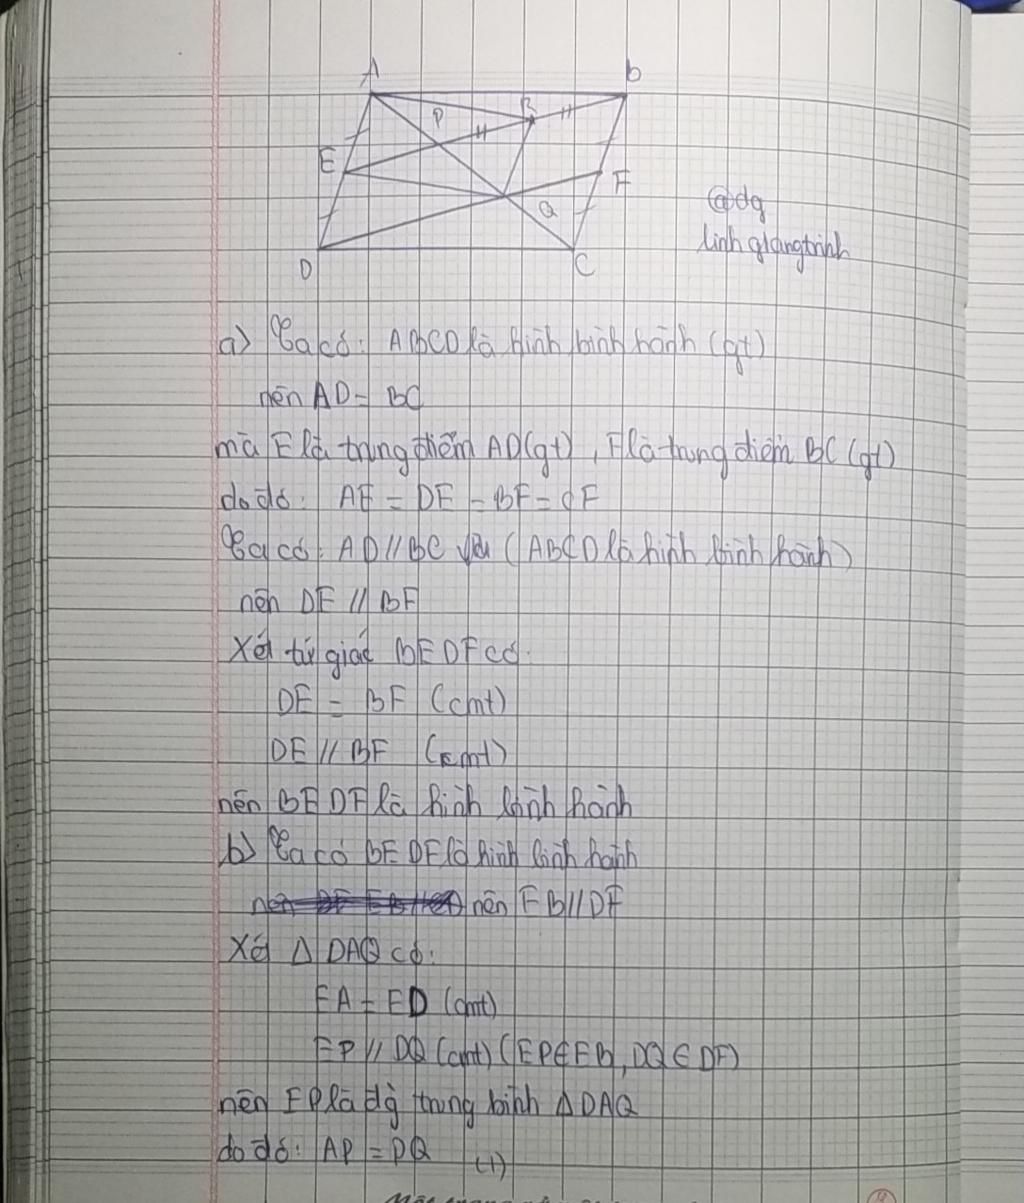 A
B
P
R
E
F
Q
D
C
@dg
linhgiangtrinh
a) Ta có: ABCD là hình bình hành (gt)
nên AD = BC
mà E là trung điểm AD (gt), F là trung điểm BC (gt)
do đó: AE = DE = BF = CF
Ta có: AD // BC (ABCD là hình bình hành)
nên DE // BF
Xét tứ giác BEDF có:
DE = BF (cmt)
DE // BF (cmt)
nên BEDF là hình bình hành
b) Ta có BEDF là hình bình hành
nên EB // DF
Xét Δ DAQ có:
EA = ED (cmt)
EP // DQ (cmt) (EP ∈ EB, DQ ∈ DF)
nên EP là đg trung bình Δ DAQ
do đó: AP = PQ (1)